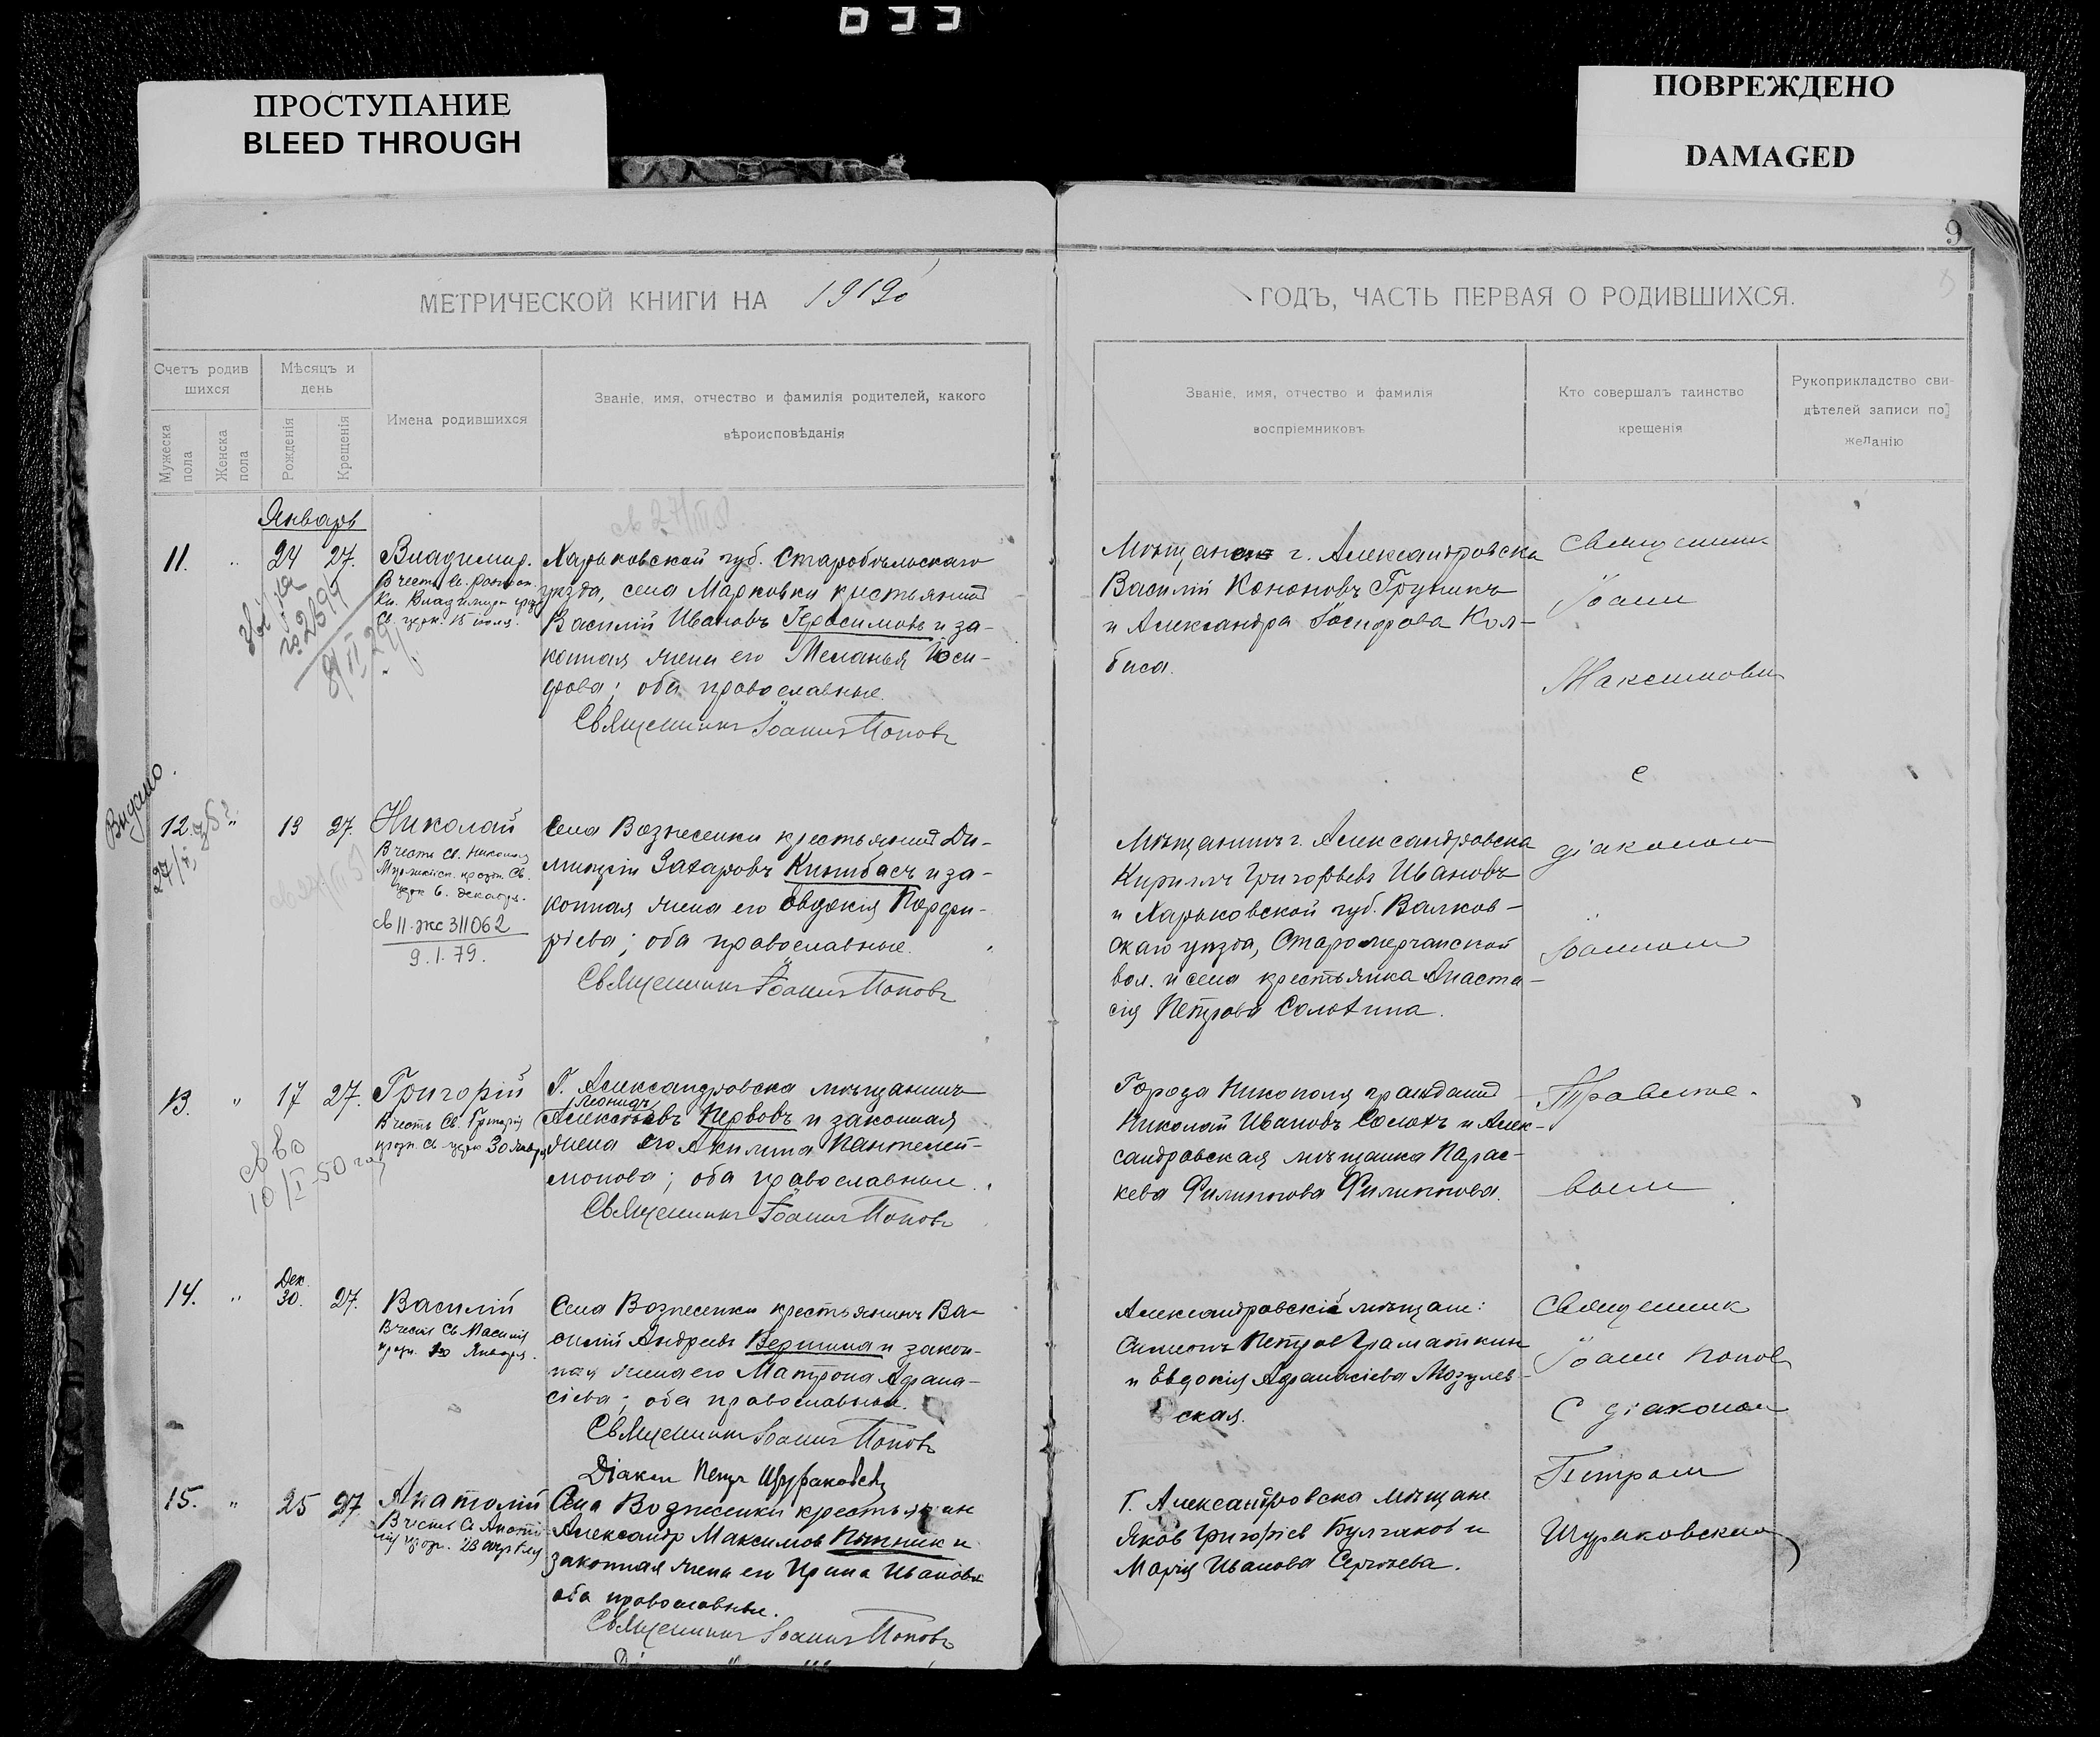 033
ПРОСТУПАНИЕ
BLEED THROUGH
ПОВРЕЖДЕНО
DAMAGED
9
МЕТРИЧЕСКОЙ КНИГИ НА 1919
ГОДЪ, ЧАСТЬ ПЕРВАЯ О РОДИВШИХСЯ.
Счетъ родив
шихся
Мужеска
пола
Женска
пола
Мѣсяцъ и
день
Рожденія
Крещенія
Имена родившихся
Званіе, имя, отчество и фамилія родителей, какого
вѣроисповѣданія
Званіе, имя, отчество и фамилія
воспріемниковъ
Кто совершалъ таинство
крещенія
Рукоприкладство сви-
дѣтелей записи по
желанію
Январь
11. " 24 27. Владимир.
Кн. Владимира
Св. церк. 15 іюля.
Харьковской губ. Старобѣльскаго
уѣзда, села Марковки крестьянинъ
Василій Ивановъ Герасимовъ и за-
конная жена его Меланья Іоси-
фова; оба православные.
Священникъ Іоаннъ Поповъ
г. Александровска
Василій Кононовъ
и Александра Іосифова Кол-
баса.
Священник
Іоанн
Максимович
Видано
12. " 13 27. Николай
В честь Св. Николая
Св.
церк 6. декабря.
св II-жс 311062
9.1.79.
Села Вознесенки крестьянинъ Ди-
митрій Захаровъ Кишбасъ и за-
конная жена его Евдокія Порфи-
ріева; оба православные.
Священникъ Іоаннъ Поповъ
Мѣщанинъ г. Александровска
Кириллъ Григорьевъ Ивановъ
и Харьковской губ. Валков-
скаго уѣзда, Старомерчанской
вол. и села крестьянка Анаста-
сія Петрова
с
діаконом
Іоанном
13. " 17 27. Григорій
В честь Св. Григорія
празн. Св церк 30 Января
10/I-50 года
Г. Александровска мѣщанинъ
Леонидъ
Алексѣевъ Первовъ и законная
жена его Акилина Пантелей-
монова; оба православные.
Священникъ Іоаннъ Поповъ
Города Никополя гражданинъ
Николай Ивановъ и Алек-
сандровская мѣщанка Парас-
кева Филиппова Филиппова.
14. " Дек. 30. 27. Василій
В честь Св Василія
празн. Января.
Села Вознесенки крестьянинъ Ва-
силій Андреевъ Вершина и закон-
ная жена его Матрона Афана-
сіева; оба православные.
Священникъ Іоаннъ Поповъ
Діакон Петръ Щураковскій
Александровскіе мѣщане:
Симеонъ Петров Граматкин
и Евдокія Афанасіева Мозулев-
ская.
Священник
Іоанн Попов
С діаконом
Петром
Щураковским
15. " 25 27 Анатолій
В честь Св Анато-
лія празн. 23 апрѣля
Села Вознесенки крестьянин
Александр Максимов Пятник и
законная жена его Ирина Иванова
оба православные.
Священникъ Іоаннъ Поповъ
Г. Александровска мѣщане
Яков Григоріев Булгаков и
Марія Иванова Сергѣева.